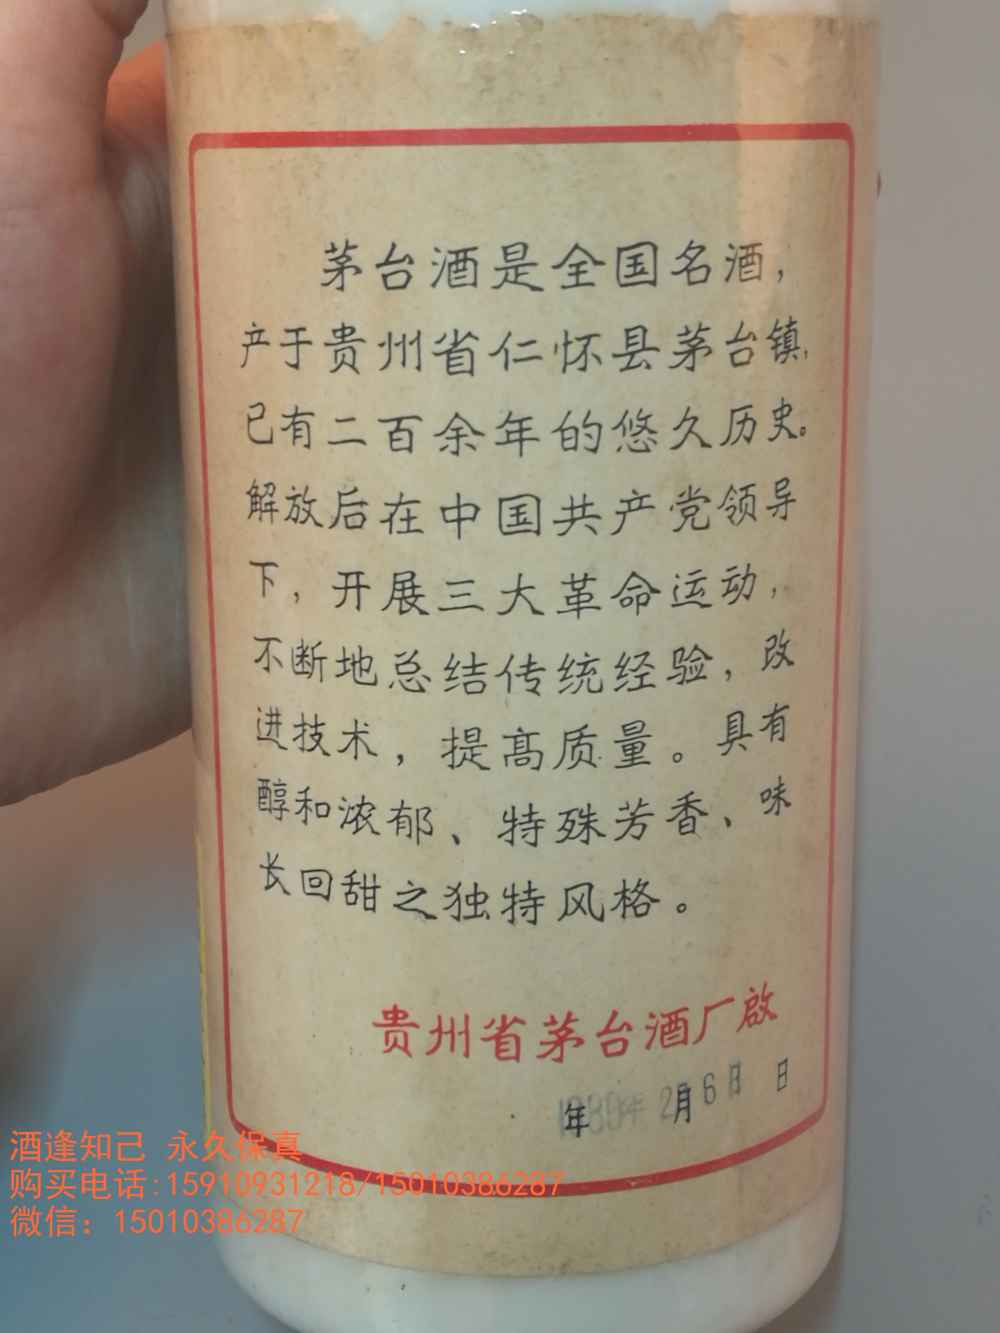 茅台酒是全国名酒，
产于贵州省仁怀县茅台镇，
已有二百余年的悠久历史。
解放后在中国共产党领导
下，开展三大革命运动，
不断地总结传统经验，改
进技术，提高质量。具有
醇和浓郁、特殊芳香、味
长回甜之独特风格。
贵州省茅台酒厂啟
年 月 日
1980年 2月 6日
酒逢知己 永久保真
购买电话:15910931218/15010386287
微信：15010386287